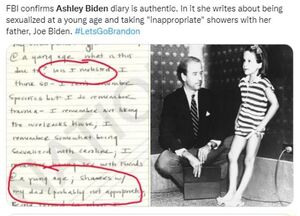 FBI confirms Ashley Biden diary is authentic. In it she writes about being
sexualized at a young age and taking "inappropriate" showers with her
father, Joe Biden. #LetsGoBrandon
@ a young age. what is this
due to? was I molested. I
think so - I can't remember
specifics but I do remember
trauma - I remember not liking
the woolzacks house; I
remember somewhat being
sexualized with caroline; I
remember having sex with friends
@ a young age; showers w/
my dad (probably not appropriate).
Being